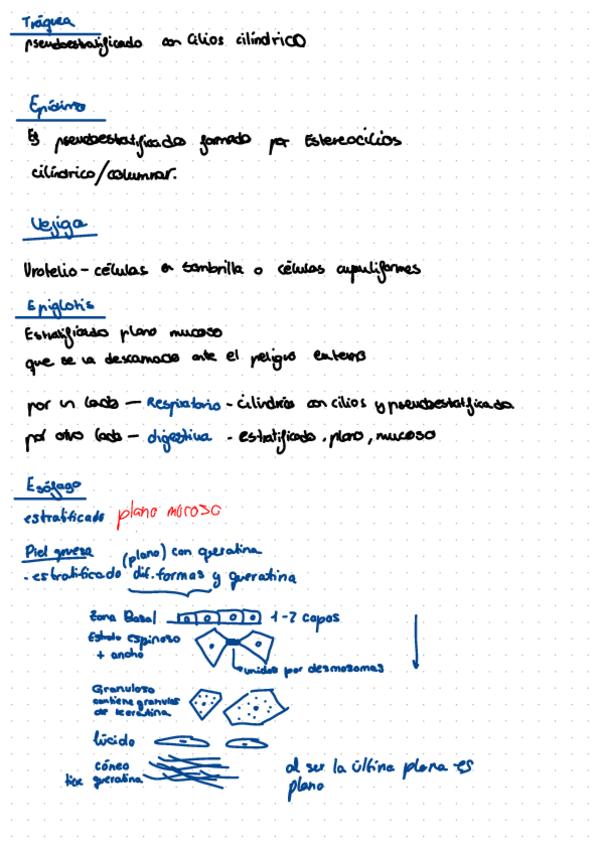 Tráquea
pseudoestratificado con cilios cilíndrico
Epídimo
Es pseudoestratificado formado por Estereocilios
cilíndrico/columnar.
Vejiga
Urotelio - células en sombrilla o células cupuliformes
Epiglotis
Estratificado plano mucoso
que se va descamado ante el peligro externo
por un lado — Respiratorio - cilíndrico con cilios y pseudoestratificado
por otro lado — digestiva - estratificado, plano, mucoso
Esófago
estratificado plano mucoso
Piel gruesa (plano) con queratina
- estratificado dif. formas y queratina
Zona Basal 1-2 capas
Estrato espinoso
+ ancho
unidos por desmosomas
Granuloso
contiene granulos
de keratina
lúcido
córneo
tiene queratina
al ser la última plana es
plano